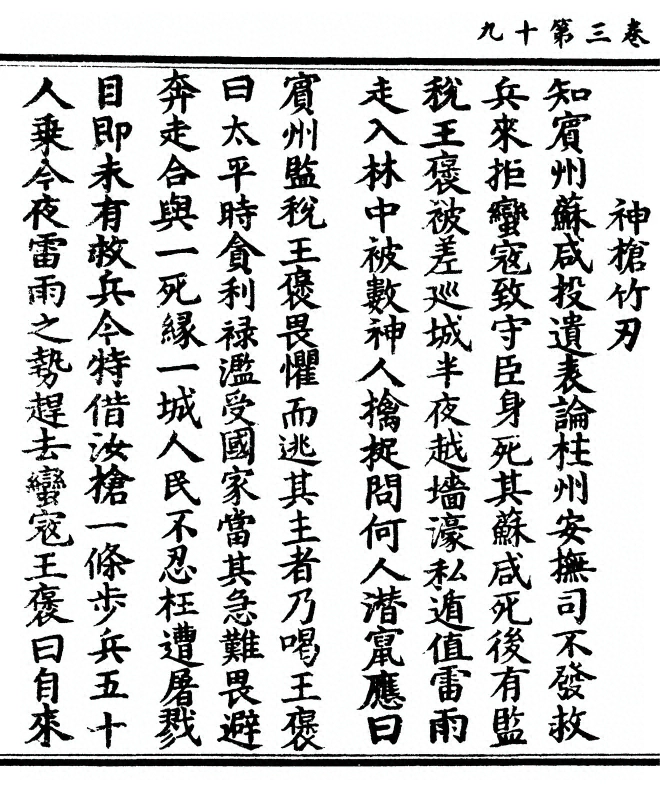 卷三第十九
神槍竹刃
知賓州蘇咸投遺表論桂州安撫司不發救
兵來拒蠻寇致守臣身死其蘇咸死後有監
稅王褒被差巡城半夜越墻濠私遁值雷雨
走入林中被數神人擒捉問何人潛竄應曰
賓州監稅王褒畏懼而逃其主者乃喝王褒
曰太平時貪利祿濫受國家當其急難畏避
奔走合與一死緣一城人民不忍枉遭屠戮
目即未有救兵今特借汝槍一條步兵五十
人乘今夜雷雨之勢趕去蠻寇王褒曰自來